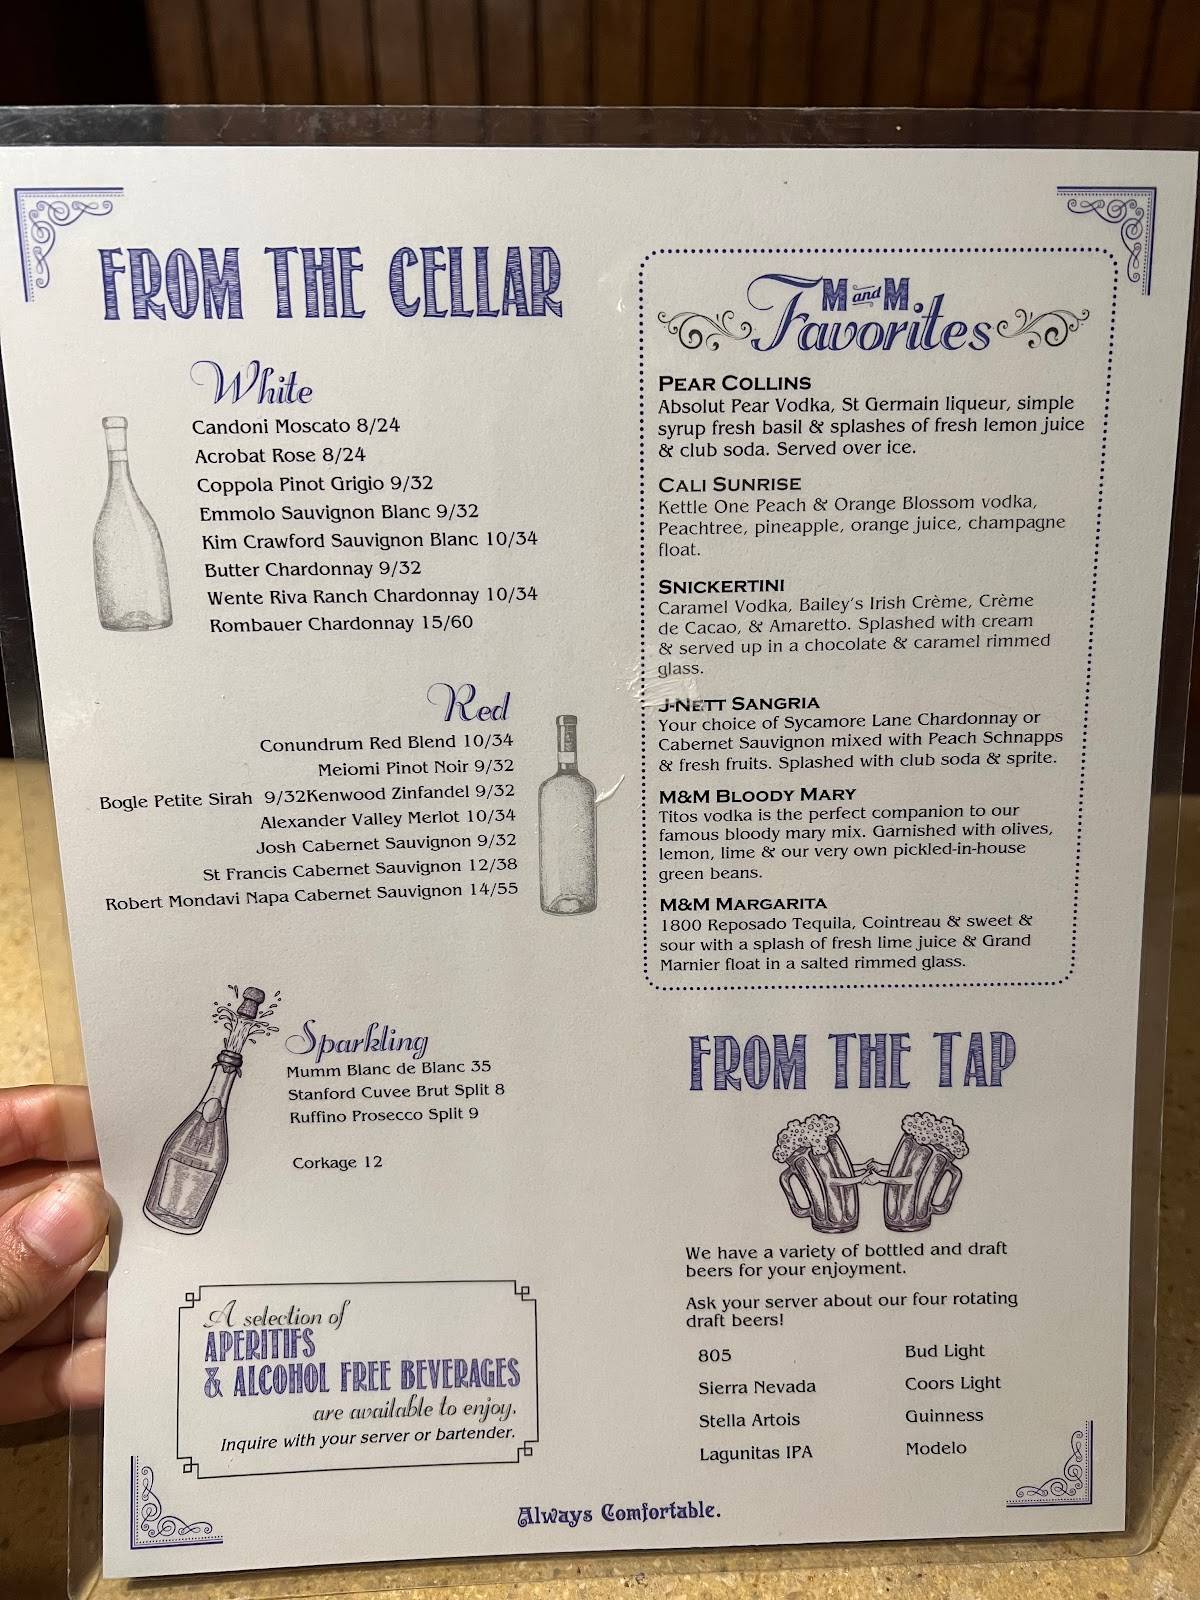 FROM THE CELLAR
White
Candoni Moscato 8/24
Acrobat Rose 8/24
Coppola Pinot Grigio 9/32
Emmolo Sauvignon Blanc 9/32
Kim Crawford Sauvignon Blanc 10/34
Butter Chardonnay 9/32
Wente Riva Ranch Chardonnay 10/34
Rombauer Chardonnay 15/60
Red
Conundrum Red Blend 10/34
Meiomi Pinot Noir 9/32
Bogle Petite Sirah 9/32Kenwood Zinfandel 9/32
Alexander Valley Merlot 10/34
Josh Cabernet Sauvignon 9/32
St Francis Cabernet Sauvignon 12/38
Robert Mondavi Napa Cabernet Sauvignon 14/55
Sparkling
Mumm Blanc de Blanc 35
Stanford Cuvee Brut Split 8
Ruffino Prosecco Split 9
Corkage 12
A selection of
APERITIFS
& ALCOHOL FREE BEVERAGES
are available to enjoy.
Inquire with your server or bartender.
M and M
Favorites
PEAR COLLINS
Absolut Pear Vodka, St Germain liqueur, simple
syrup fresh basil & splashes of fresh lemon juice
& club soda. Served over ice.
CALI SUNRISE
Kettle One Peach & Orange Blossom vodka,
Peachtree, pineapple, orange juice, champagne
float.
SNICKERTINI
Caramel Vodka, Bailey's Irish Crème, Crème
de Cacao, & Amaretto. Splashed with cream
& served up in a chocolate & caramel rimmed
glass.
J-NETT SANGRIA
Your choice of Sycamore Lane Chardonnay or
Cabernet Sauvignon mixed with Peach Schnapps
& fresh fruits. Splashed with club soda & sprite.
M&M BLOODY MARY
Titos vodka is the perfect companion to our
famous bloody mary mix. Garnished with olives,
lemon, lime & our very own pickled-in-house
green beans.
M&M MARGARITA
1800 Reposado Tequila, Cointreau & sweet &
sour with a splash of fresh lime juice & Grand
Marnier float in a salted rimmed glass.
FROM THE TAP
We have a variety of bottled and draft
beers for your enjoyment.
Ask your server about our four rotating
draft beers!
805
Sierra Nevada
Stella Artois
Lagunitas IPA
Bud Light
Coors Light
Guinness
Modelo
Always Comfortable.